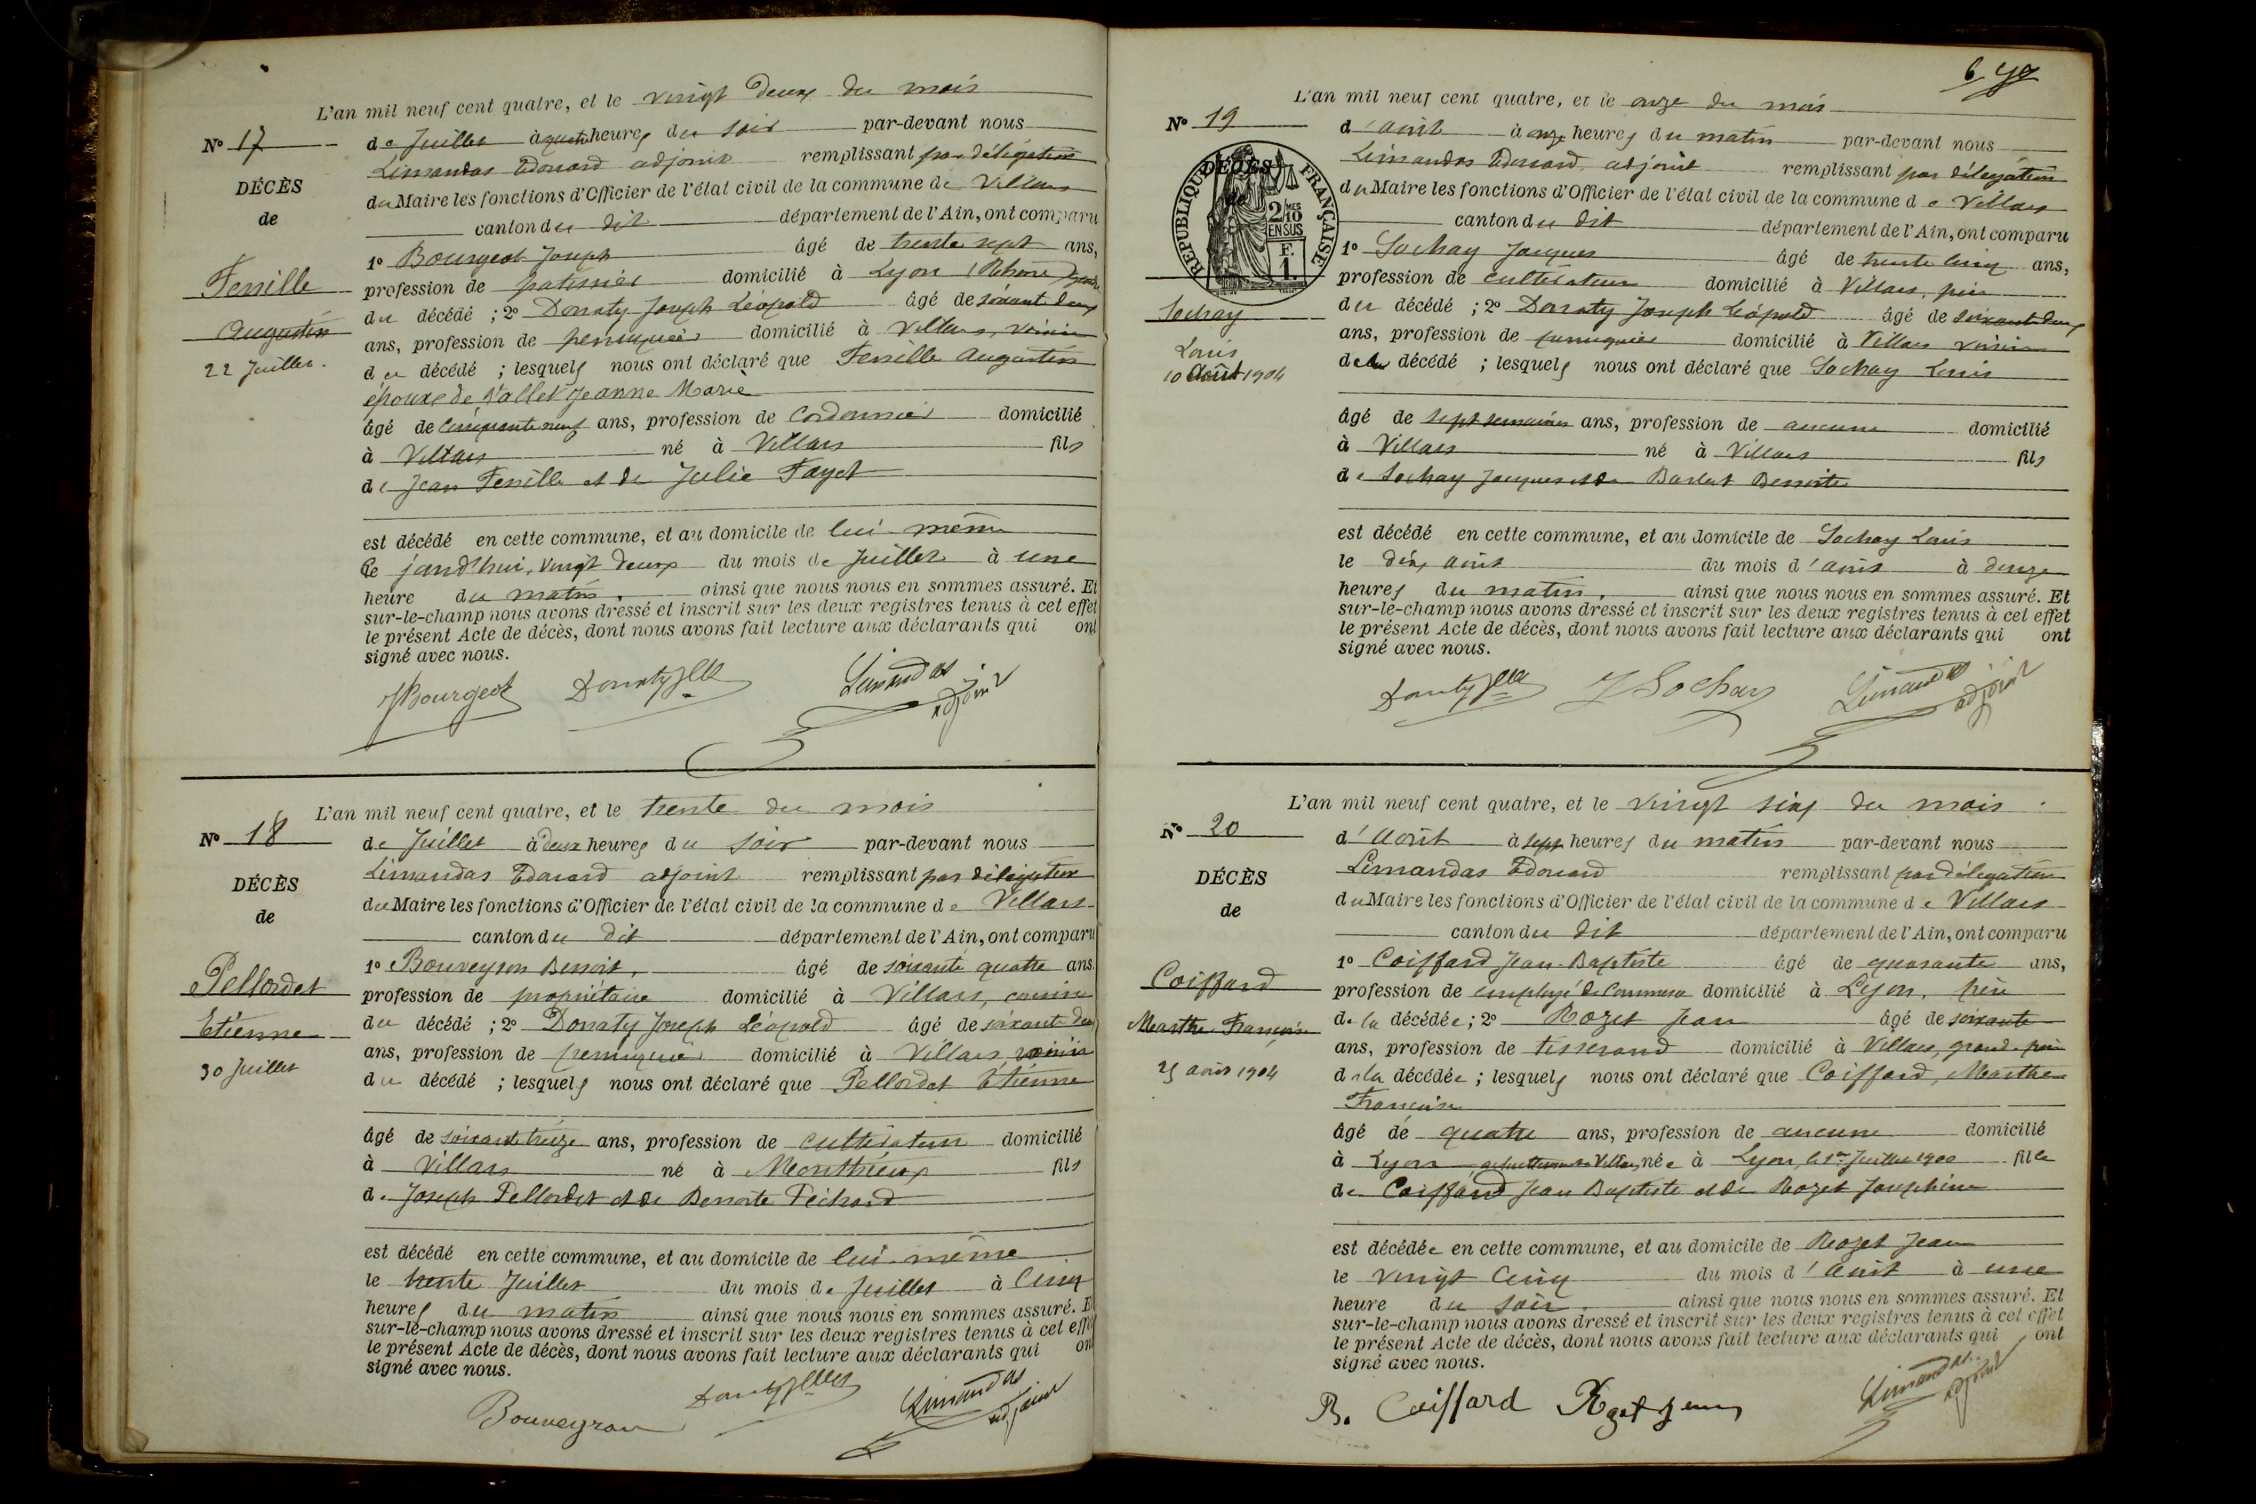 L'an mil neuf cent quatre, et le vingt deux du mois
N° 17
de Juillet à quatre heures du soir par-devant nous
Limandas Edouard adjoint remplissant par délégation
DÉCÈS
du Maire les fonctions d'Officier de l'état civil de la commune de Villars
de
canton du dit département de l'Ain, ont comparu
1° Bourgeot Joseph âgé de trente sept ans,
Ferrille
profession de patissier domicilié à Lyon (Rhône)
du décédé ; 2° Donaty Joseph Léopold âgé de soixant deux
Augustin
ans, profession de perruquier domicilié à Villars, voisin
22 Juillet.
du décédé ; lesquels nous ont déclaré que Ferrille Augustin
époux de Vallet Jeanne Marie
âgé de cinquante neuf ans, profession de Cordonnier domicilié
à Villars né à Villars fils
de Jean Ferrille et de Julie Fayet
est décédé en cette commune, et au domicile de lui même
Ce jourd'hui, vingt deux du mois de Juillet à une
heure du matin. ainsi que nous nous en sommes assuré. Et
sur-le-champ nous avons dressé et inscrit sur les deux registres tenus à cet effet
le présent Acte de décès, dont nous avons fait lecture aux déclarants qui ont
signé avec nous.
JBourgeot Donaty Limandas adjoint
L'an mil neuf cent quatre, et le trente du mois
N° 18
de Juillet à deux heures du soir par-devant nous
Limandas Edouard adjoint remplissant par délégation
DÉCÈS
du Maire les fonctions d'Officier de l'état civil de la commune de Villars
de
canton du dit département de l'Ain, ont comparu
1° Bouveyron Benoit, âgé de soixante quatre ans
Pellordet
profession de propriétaire domicilié à Villars, cousin
Etienne
du décédé ; 2° Donaty Joseph Léopold âgé de soixant deux
ans, profession de perruquier domicilié à Villars, voisin
30 Juillet
du décédé ; lesquels nous ont déclaré que Pellordet Etienne
âgé de soixante treize ans, profession de cultivateur domicilié
à Villars né à Monthieux fils
de Joseph Pellordet et de Benoite Péchard
est décédé en cette commune, et au domicile de lui-même
le trente Juillet du mois de Juillet à Cinq
heures du matin ainsi que nous nous en sommes assuré. E
sur-le-champ nous avons dressé et inscrit sur les deux registres tenus à cet effet
le présent Acte de décès, dont nous avons fait lecture aux déclarants qui on
signé avec nous.
Bouveyron Donaty Limandas adjoint
6
L'an mil neuf cent quatre, et le onze du mois
N° 19
d'août à onze heures du matin par-devant nous
Limandas Edouard adjoint remplissant par délégation
DÉCÈS
RÉPUBLIQUE FRANÇAISE
2 MES
10
EN SUS
F.
1.
du Maire les fonctions d'Officier de l'état civil de la commune de Villars
canton du dit département de l'Ain, ont comparu
1° Sochay Jacques âgé de trente cinq ans,
profession de cultivateur domicilié à Villars, père
Sochay
du décédé ; 2° Donaty Joseph Léopold âgé de soixant deux
ans, profession de perruquier domicilié à Villars voisin
Louis
10 Août 1904
du décédé ; lesquels nous ont déclaré que Sochay Louis
âgé de sept semaines ans, profession de aucune domicilié
à Villars né à Villars fils
de Sochay Jacques et de Barlet Benoite
est décédé en cette commune, et au domicile de Sochay Louis
le dix août du mois d'août à onze
heures du matin. ainsi que nous nous en sommes assuré. Et
sur-le-champ nous avons dressé et inscrit sur les deux registres tenus à cet effet
le présent Acte de décès, dont nous avons fait lecture aux déclarants qui ont
signé avec nous.
Donaty J Sochay Limandas adjoint
L'an mil neuf cent quatre, et le vingt six du mois
N° 20
d'Août à sept heures du matin par-devant nous
Limandas Edouard remplissant par délégation
DÉCÈS
du Maire les fonctions d'Officier de l'état civil de la commune de Villars
de
canton du dit département de l'Ain, ont comparu
1° Coiffard Jean-Baptiste âgé de quarante ans,
Coiffard
profession de employé de Commerce domicilié à Lyon, père
Marthe Françoise
de la décédée ; 2° Rozet Jean âgé de soixante
ans, profession de tisserand domicilié à Villars, grand-père
25 août 1904
de la décédée ; lesquels nous ont déclaré que Coiffard, Marthe
Françoise
âgé de quatre ans, profession de aucune domicilié
à Lyon actuellement à Villars, née à Lyon, le 1er Juillet 1900 fille
de Coiffard Jean Baptiste et de Rozet Joséphine
est décédée en cette commune, et au domicile de Rozet Jean
le vingt Cinq du mois d'Août à une
heure du soir. ainsi que nous nous en sommes assuré. Et
sur-le-champ nous avons dressé et inscrit sur les deux registres tenus à cet effet
le présent Acte de décès, dont nous avons fait lecture aux déclarants qui ont
signé avec nous.
B. Coiffard Rozet Jean Limandas adjoint